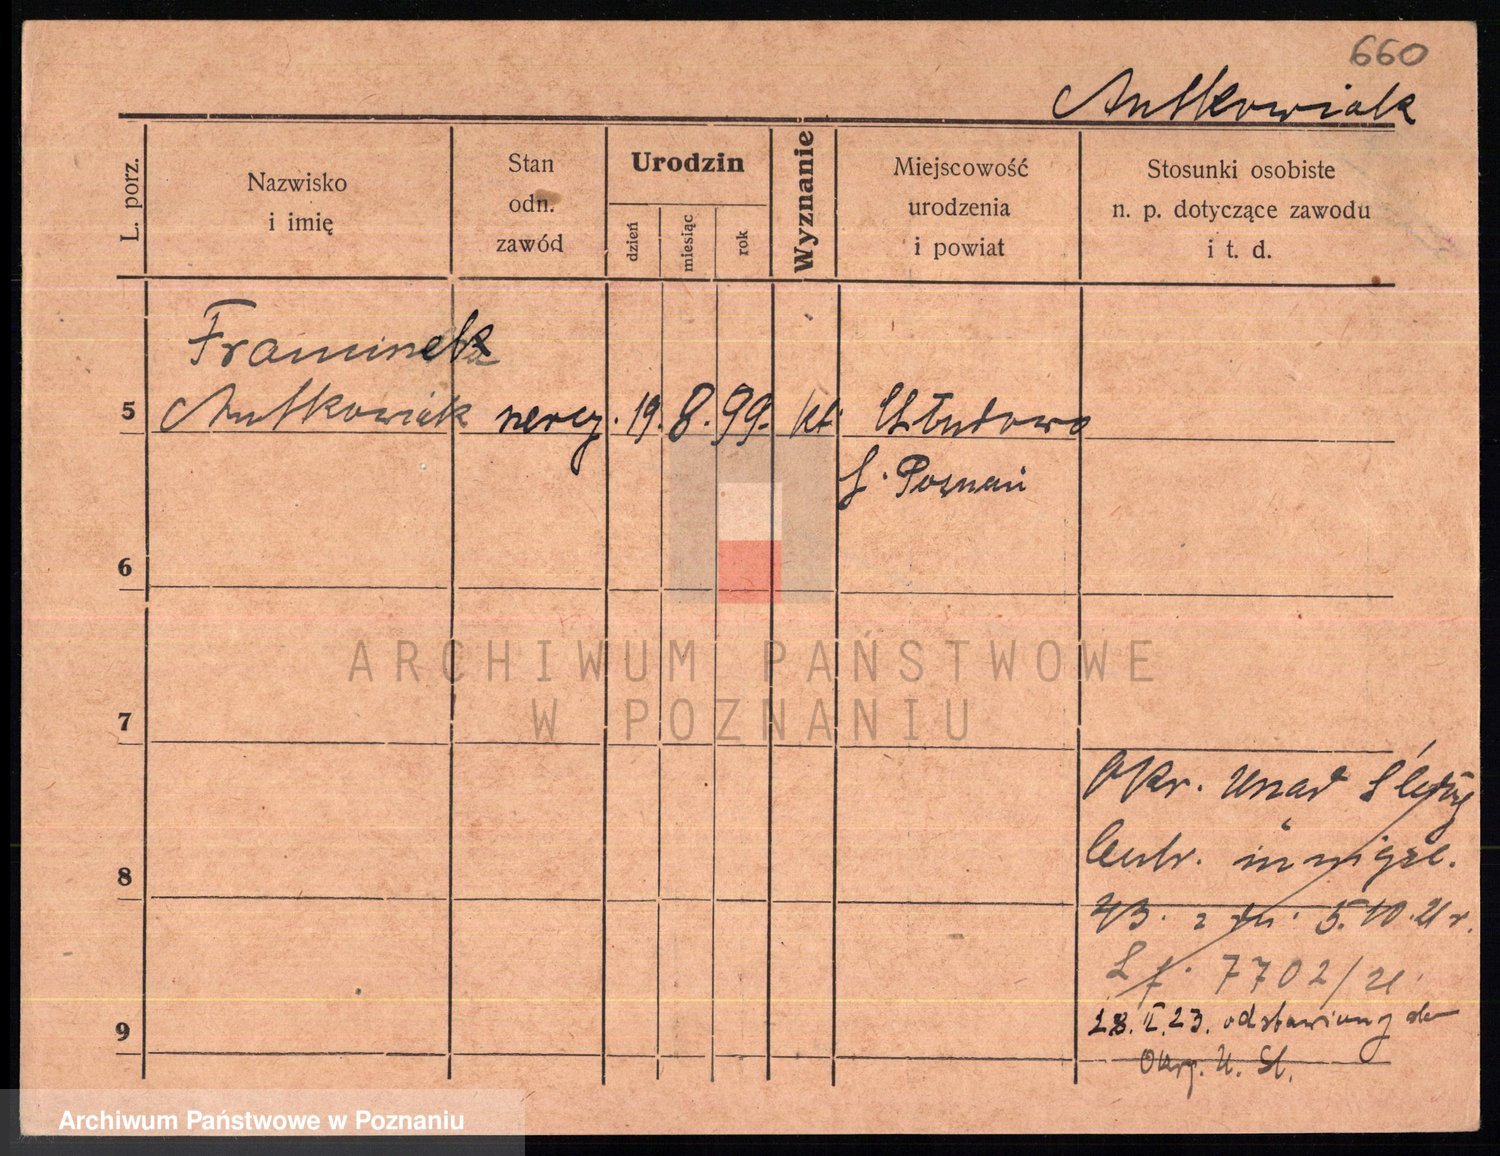 660
Antkowiak
L. porz.
Nazwisko
i imię
Stan
odn.
zawód
Urodzin
dzień
miesiąc
rok
Wyznanie
Miejscowość
urodzenia
i powiat
Stosunki osobiste
n. p. dotyczące zawodu
i t. d.
Franciszek
5 Antkowiak 19. 8. 99. kt.
Poznań
6
ARCHIWUM PAŃSTWOWE
W POZNANIU
7
Okr. Urząd
8
43. z dn. 5.10.21 r.
7702/21.
9
28. II. 23. odstawiony do
Okrg. U. Śl.
Archiwum Państwowe w Poznaniu